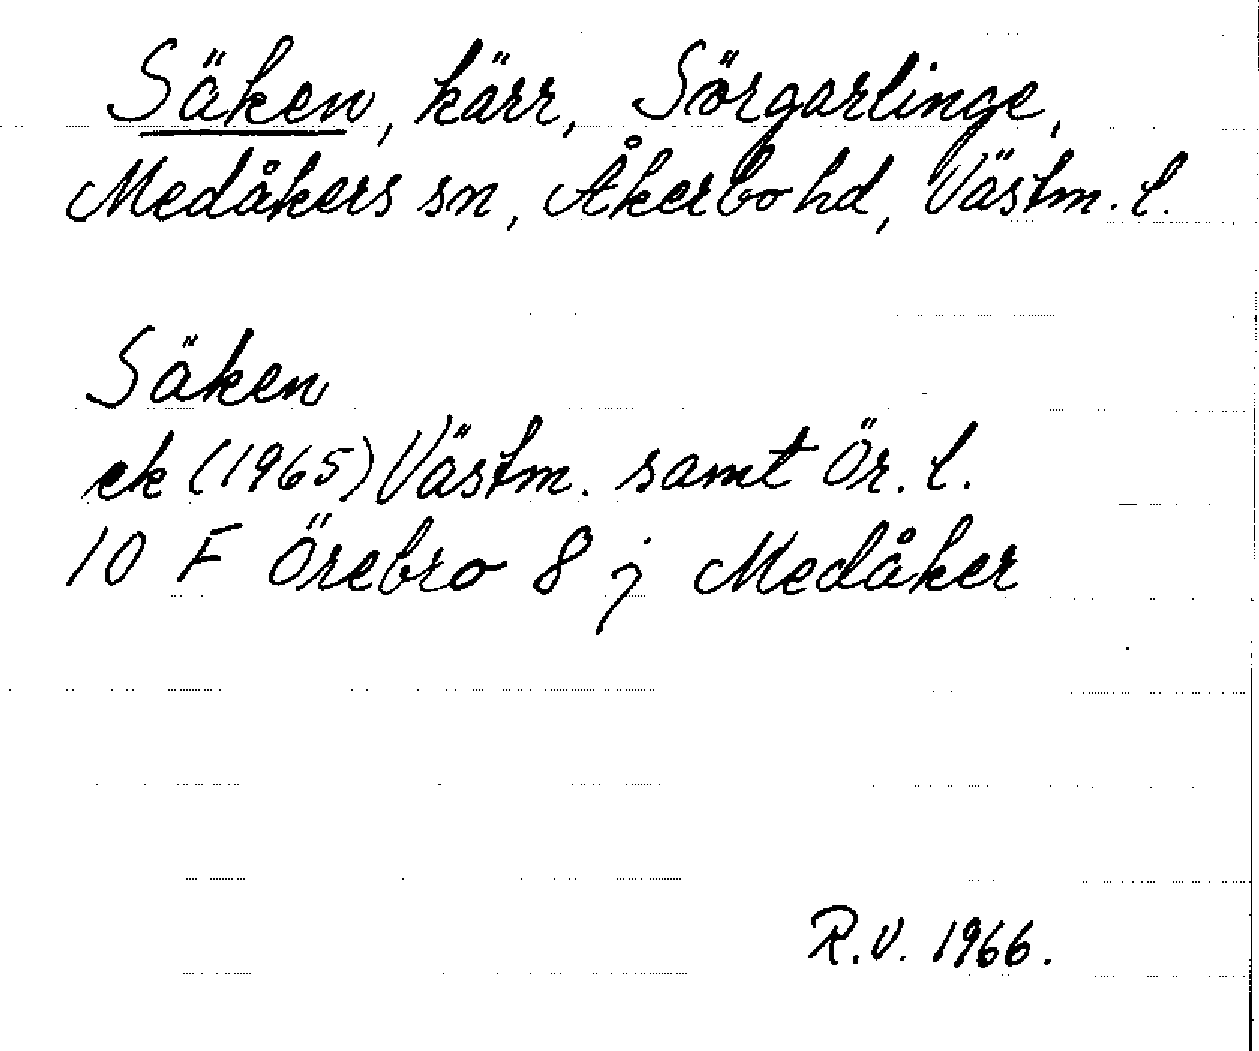 Säken, kärr, Sörgarlinge,
Medåkers sn, Åkerbo hd, Västm. l.
Säken
ek (1965) Västm. samt Ör. l.
10 F Örebro 8 j Medåker
R.V. 1966.